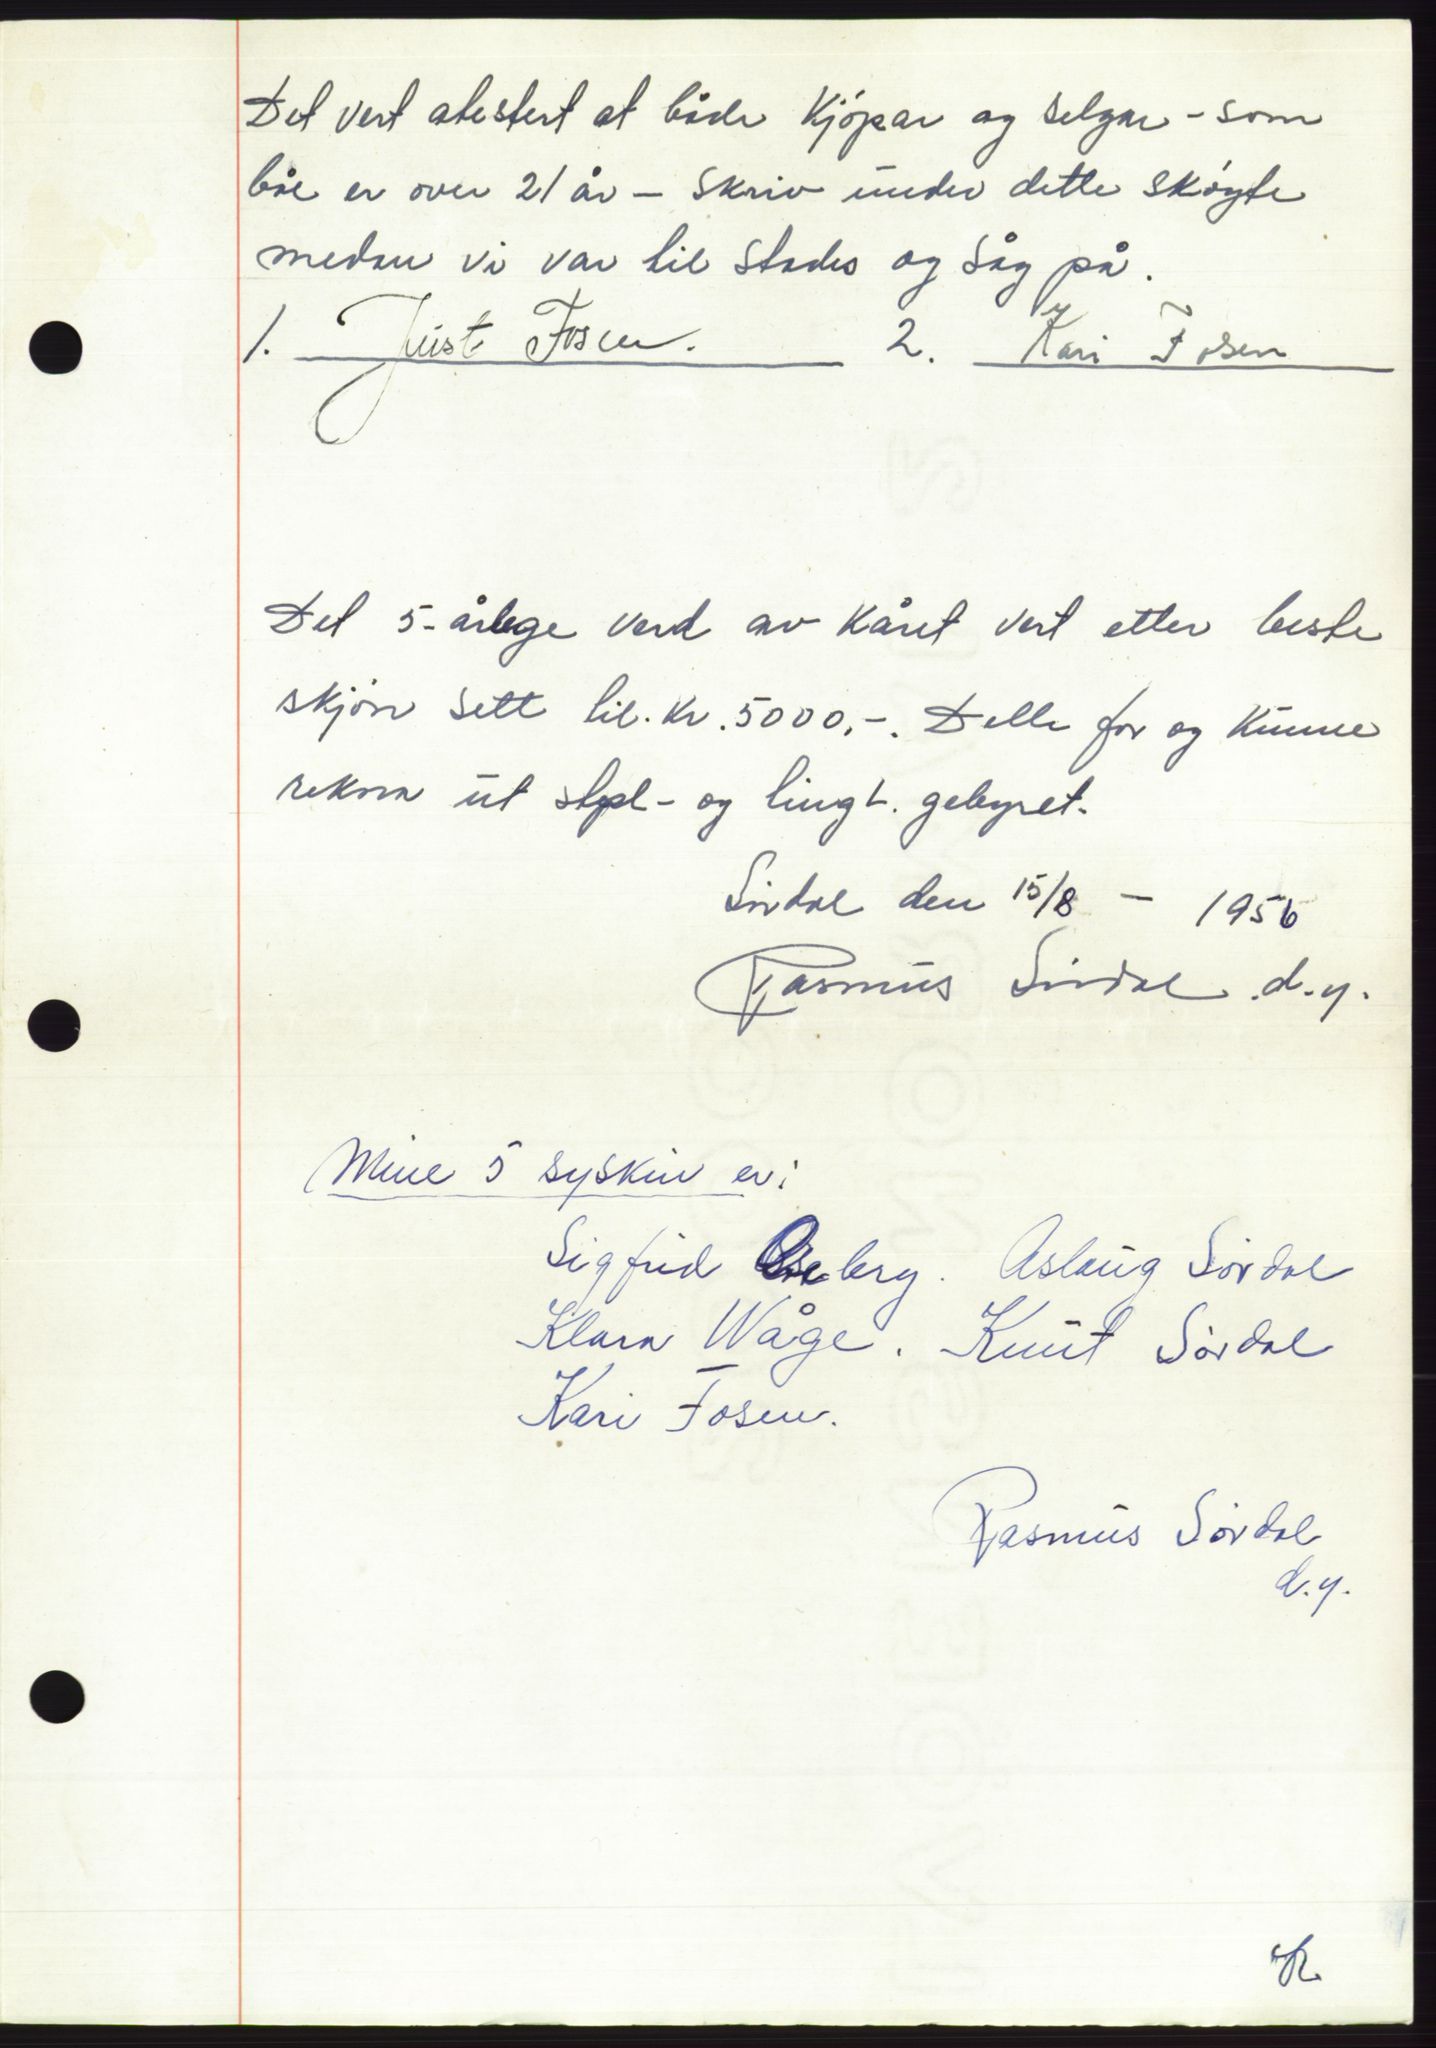 Det vert atestert at både kjöpar og selgar - som
båe er over 21 år - skriv under dette skøyte
medan vi var til stades og såg på.
1. Just Fosen. 2. Kari Fosen
Det 5-årlege verd av kåret vert etter beste
skjøn sett til. kr. 5000,-. Dette for og kunne
rekna ut stpl- og tingl. gebyret.
Sördal den 15/8 - 1956
Rasmus Sördal d.y.
Mine 5 syskin er:
Sigfrid Oseberg. Aslaug Sørdal
Klara Våge. Knut Sørdal
Kari Fosen.
Rasmus Sørdal
d.y.